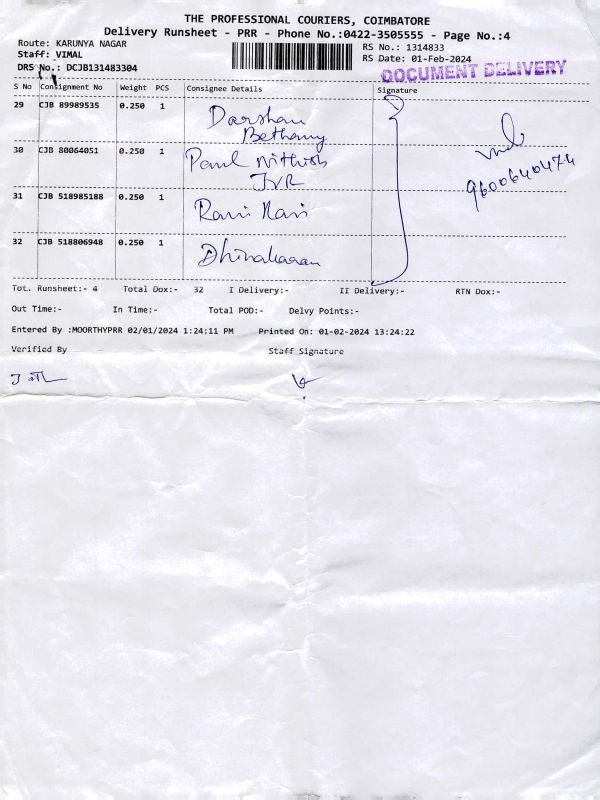 THE PROFESSIONAL COURIERS, COIMBATORE
Delivery Runsheet - PRR - Phone No.:0422-3505555 - Page No.:4
Route: KARUNYA NAGAR
RS No.: 1314833
Staff: VIMAL
RS Date: 01-Feb-2024
DRS No.: DCJB131483304
DOCUMENT DELIVERY
S No Consignment No Weight PCS Consignee Details Signature
29 CJB 89989535 0.250 1 Darshan
Bethany
30 CJB 80064051 0.250 1 Paul Nithish
JVR
9600640474
31 CJB 518985188 0.250 1 Ravi Kavi
32 CJB 518806948 0.250 1 Dhinakaran
Tot. Runsheet:- 4 Total Dox:- 32 I Delivery:- II Delivery:- RTN Dox:-
Out Time:- In Time:- Total POD:- Delvy Points:-
Entered By :MOORTHYPRR 02/01/2024 1:24:11 PM Printed On: 01-02-2024 13:24:22
Verified By Staff Signature